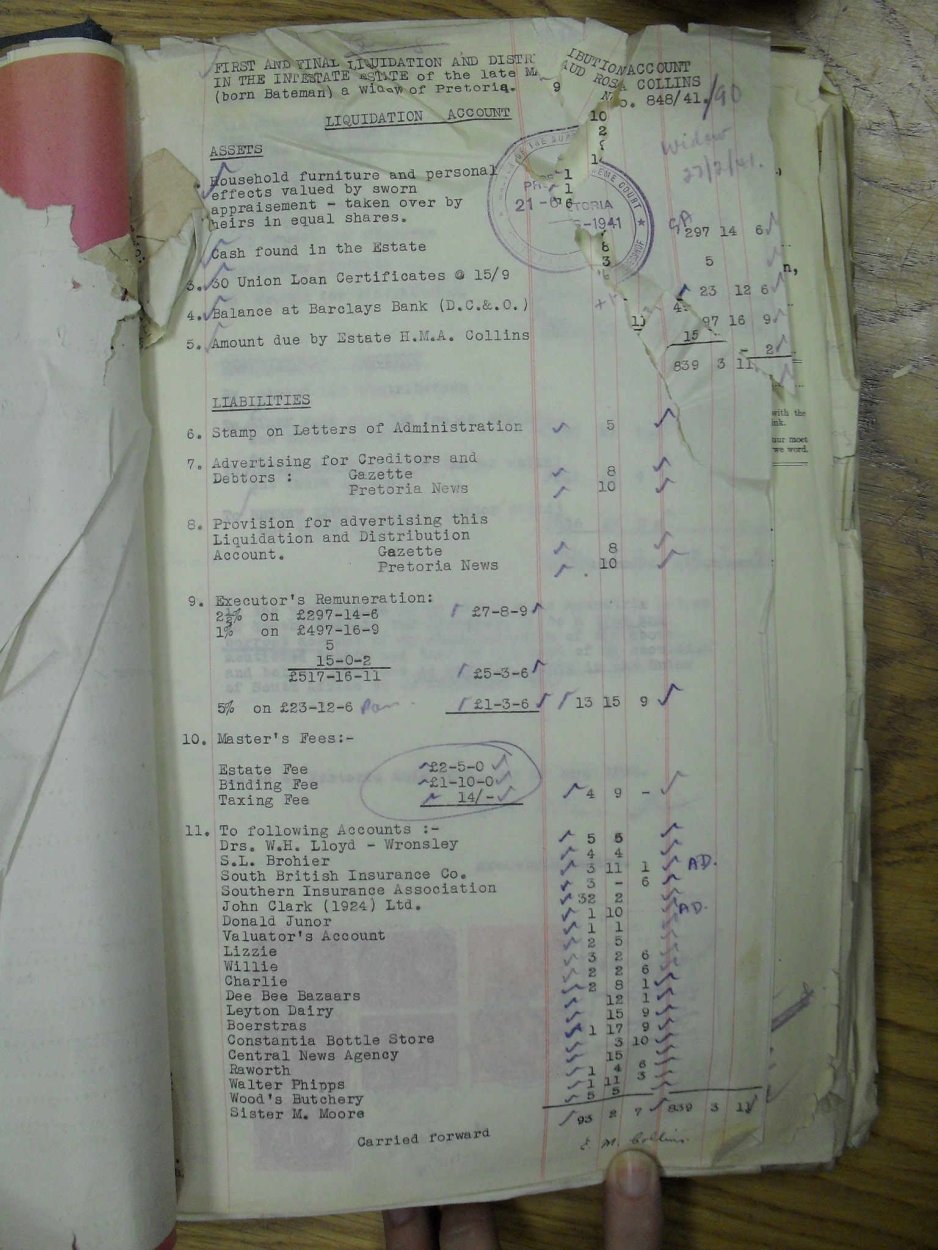 FIRST AND FINAL LIQUIDATION AND DISTRIBUTION ACCOUNT
IN THE INTESTATE ESTATE of the late MAUD ROSA COLLINS
(born Bateman) a widow of Pretoria. No. 848/41./90
LIQUIDATION ACCOUNT
Widow
ASSETS
Household furniture and personal
effects valued by sworn
appraisement - taken over by
heirs in equal shares. 297 14 6
Cash found in the Estate 5
3. 30 Union Loan Certificates @ 15/9 23 12 6
4. Balance at Barclays Bank (D.C.&.O.) 497 16 9
5. Amount due by Estate H.M.A. Collins 15 - 2
839 3 11
LIABILITIES
6. Stamp on Letters of Administration 5
7. Advertising for Creditors and
Debtors : Gazette 8
Pretoria News 10
8. Provision for advertising this
Liquidation and Distribution
Account. Gazette 8
Pretoria News 10
9. Executor's Remuneration:
2½% on £297-14-6 £7-8-9
1% on £497-16-9
5
15-0-2
£517-16-11 £5-3-6
5% on £23-12-6 £1-3-6 13 15 9
10. Master's Fees:-
Estate Fee £2-5-0
Binding Fee £1-10-0
Taxing Fee 14/- 4 9 -
11. To following Accounts :-
Drs. W.H. Lloyd - Wronsley 5 5
S.L. Brohier 4 4
South British Insurance Co. 3 11 1 AD.
Southern Insurance Association 3 - 6
John Clark (1924) Ltd. 32 2
Donald Junor 1 10 AD.
Valuator's Account 1 1
Lizzie 2 5
Willie 3 2 6
Charlie 2 2 6
Dee Bee Bazaars 2 8 1
Leyton Dairy 12 1
Boerstras 15 9
Constantia Bottle Store 1 17 9
Central News Agency 3 10
Raworth 15
Walter Phipps 1 4 6
Wood's Butchery 1 11 3
Sister M. Moore 5 5
93 2 7 839 3 11
Carried forward
M. Collins